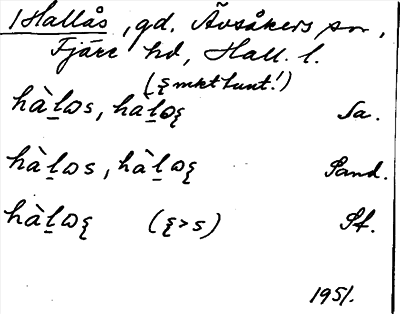 1 Hallås, gd. Ävsåkers sn,
Fjäre hd, Hall. l.
(ʂ mkt tunt!)
hàl̠ɷs, hàl̠ɷʂ Sa.
hàl̠ɷs, hàl̠ɷʂ Sand.
hàl̠ɷʂ (ʂ>s) Sf.
1951.